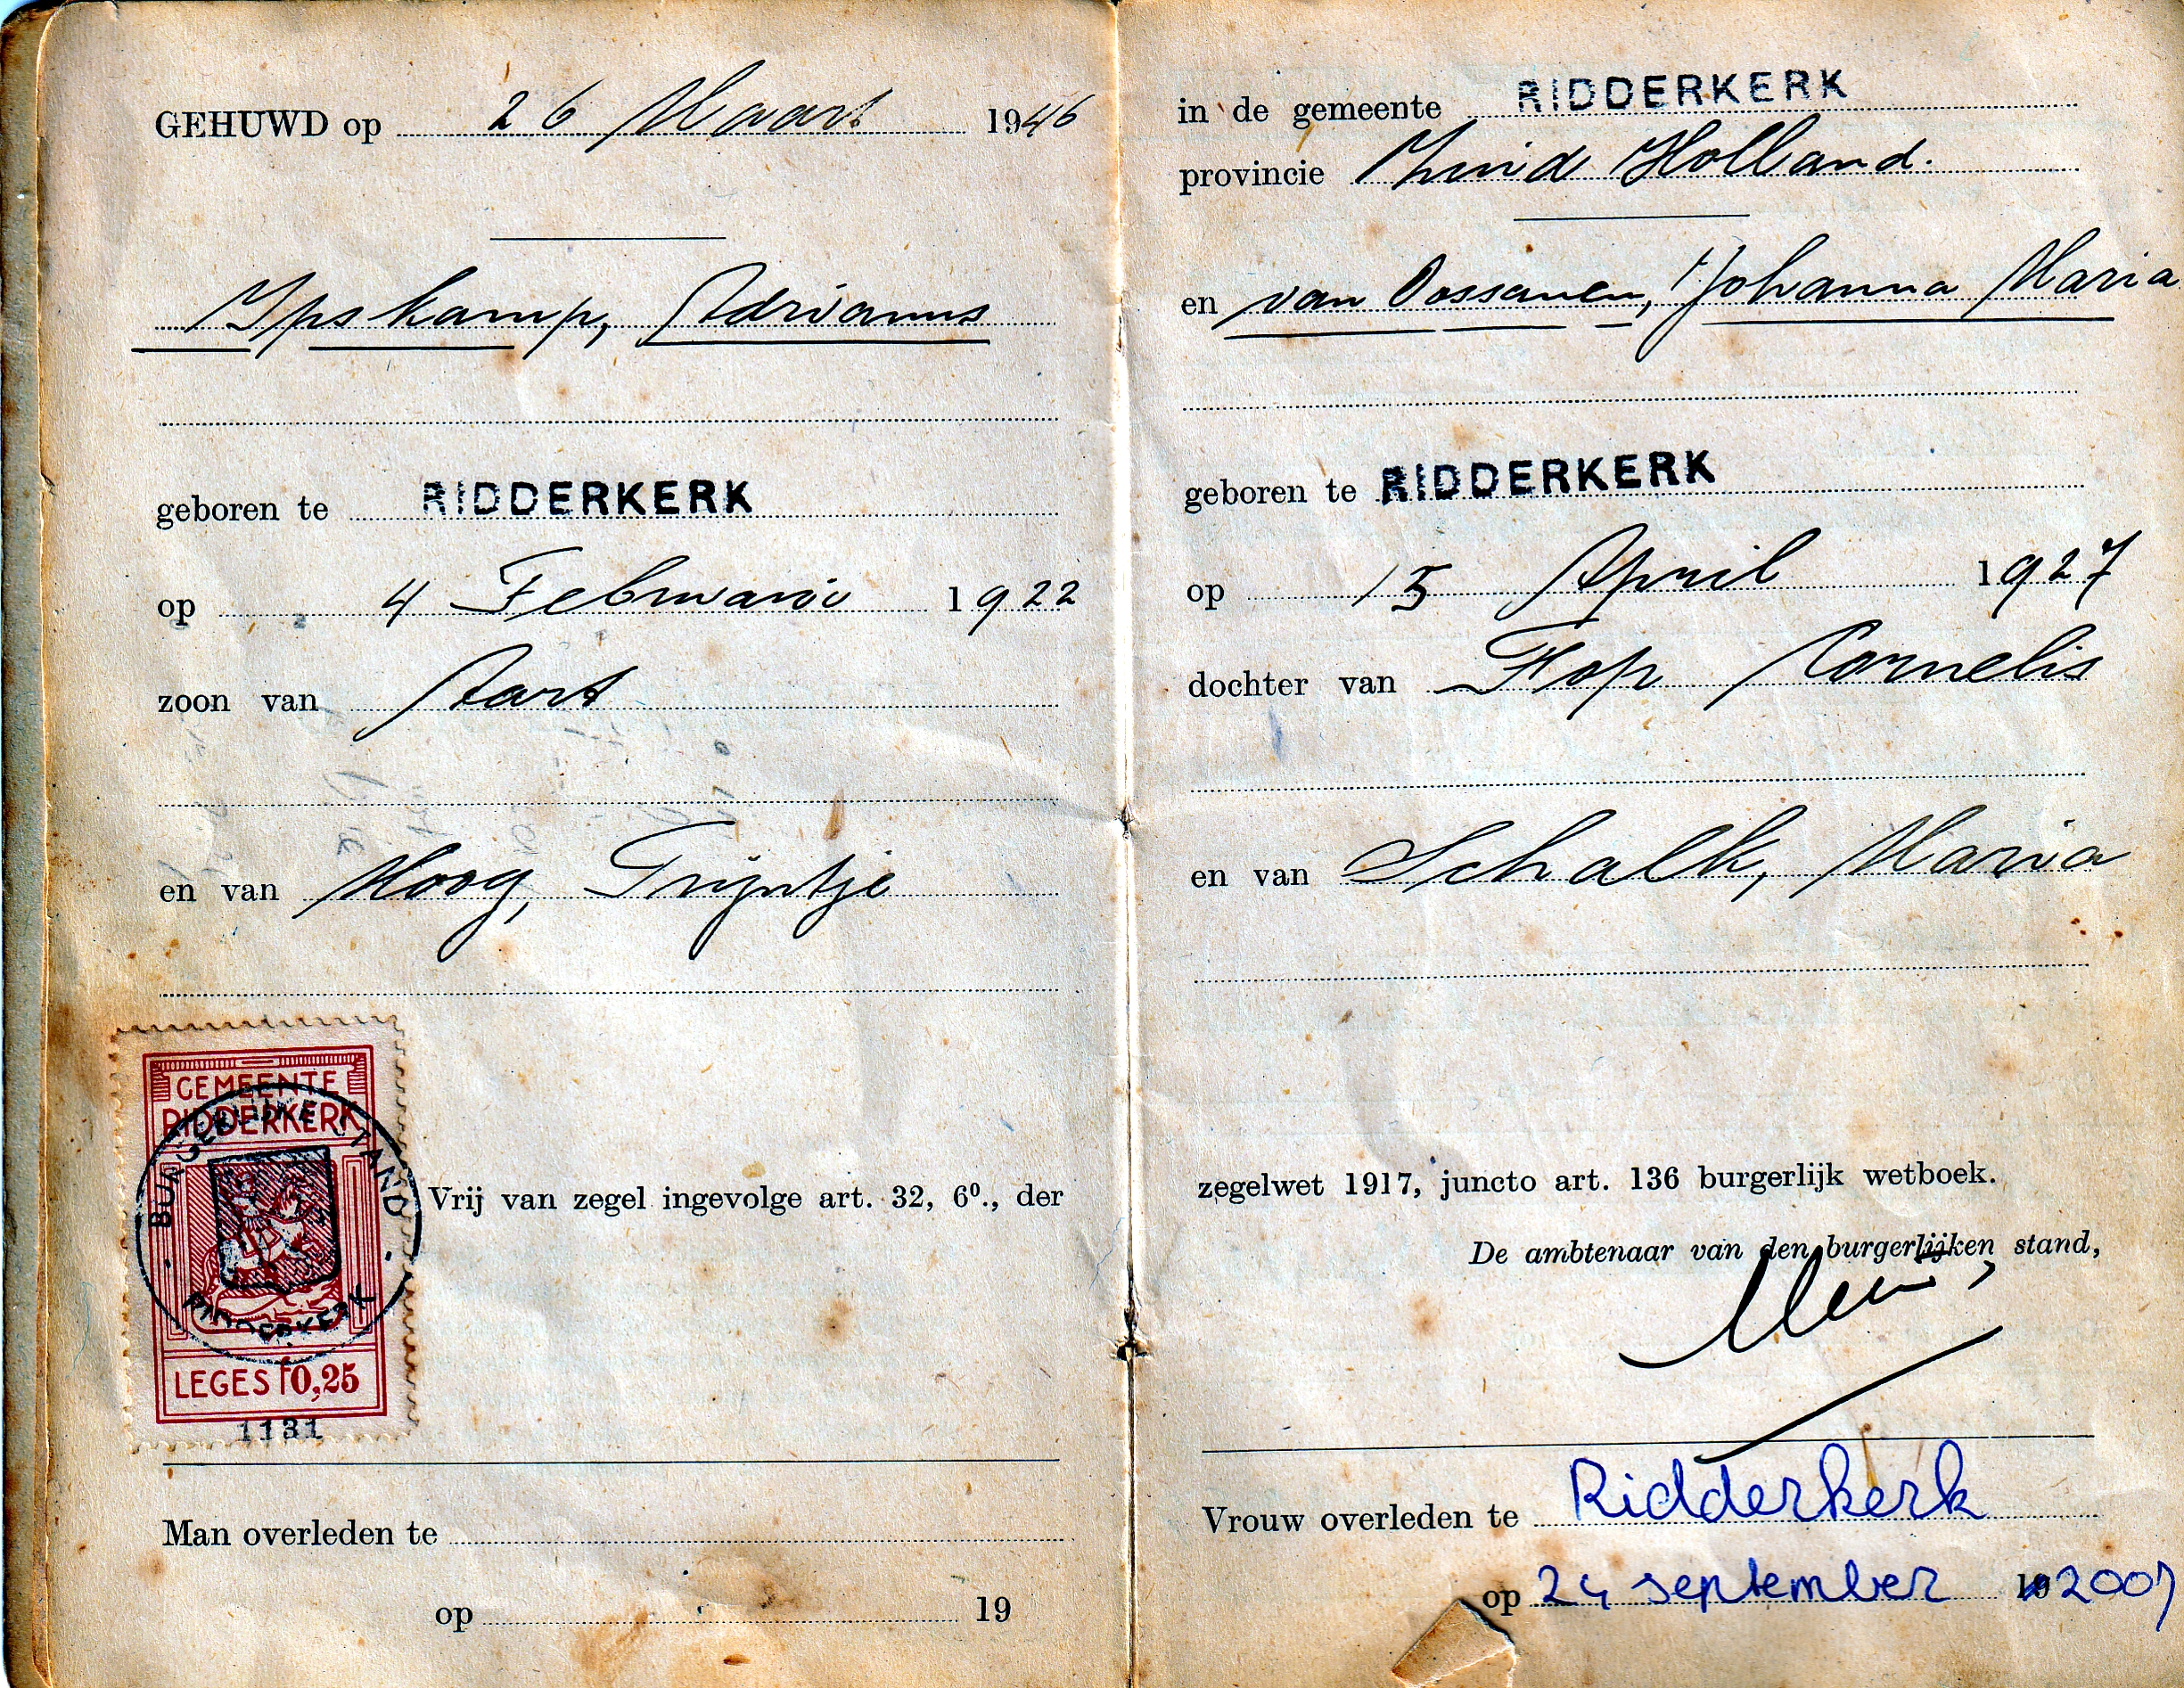 GEHUWD op 26 Maart 1946
Ypskamp, Adrianus
geboren te RIDDERKERK
op 4 Februari 1922
zoon van Aart
en van Hoog, Trijntje
GEMEENTE
RIDDERKERK
BURGERLIJKE STAND
RIDDERKERK
LEGES f0,25
1131
Vrij van zegel ingevolge art. 32, 6º., der
Man overleden te
op 19
in de gemeente RIDDERKERK
provincie Zuid Holland.
en van Oossanen, Johanna Maria
geboren te RIDDERKERK
op 15 April 1927
dochter van Flop Cornelis
en van Schalk, Maria
zegelwet 1917, juncto art. 136 burgerlijk wetboek.
De ambtenaar van den burgerlijken stand,
Vrouw overleden te Ridderkerk
op 24 september 19 2007